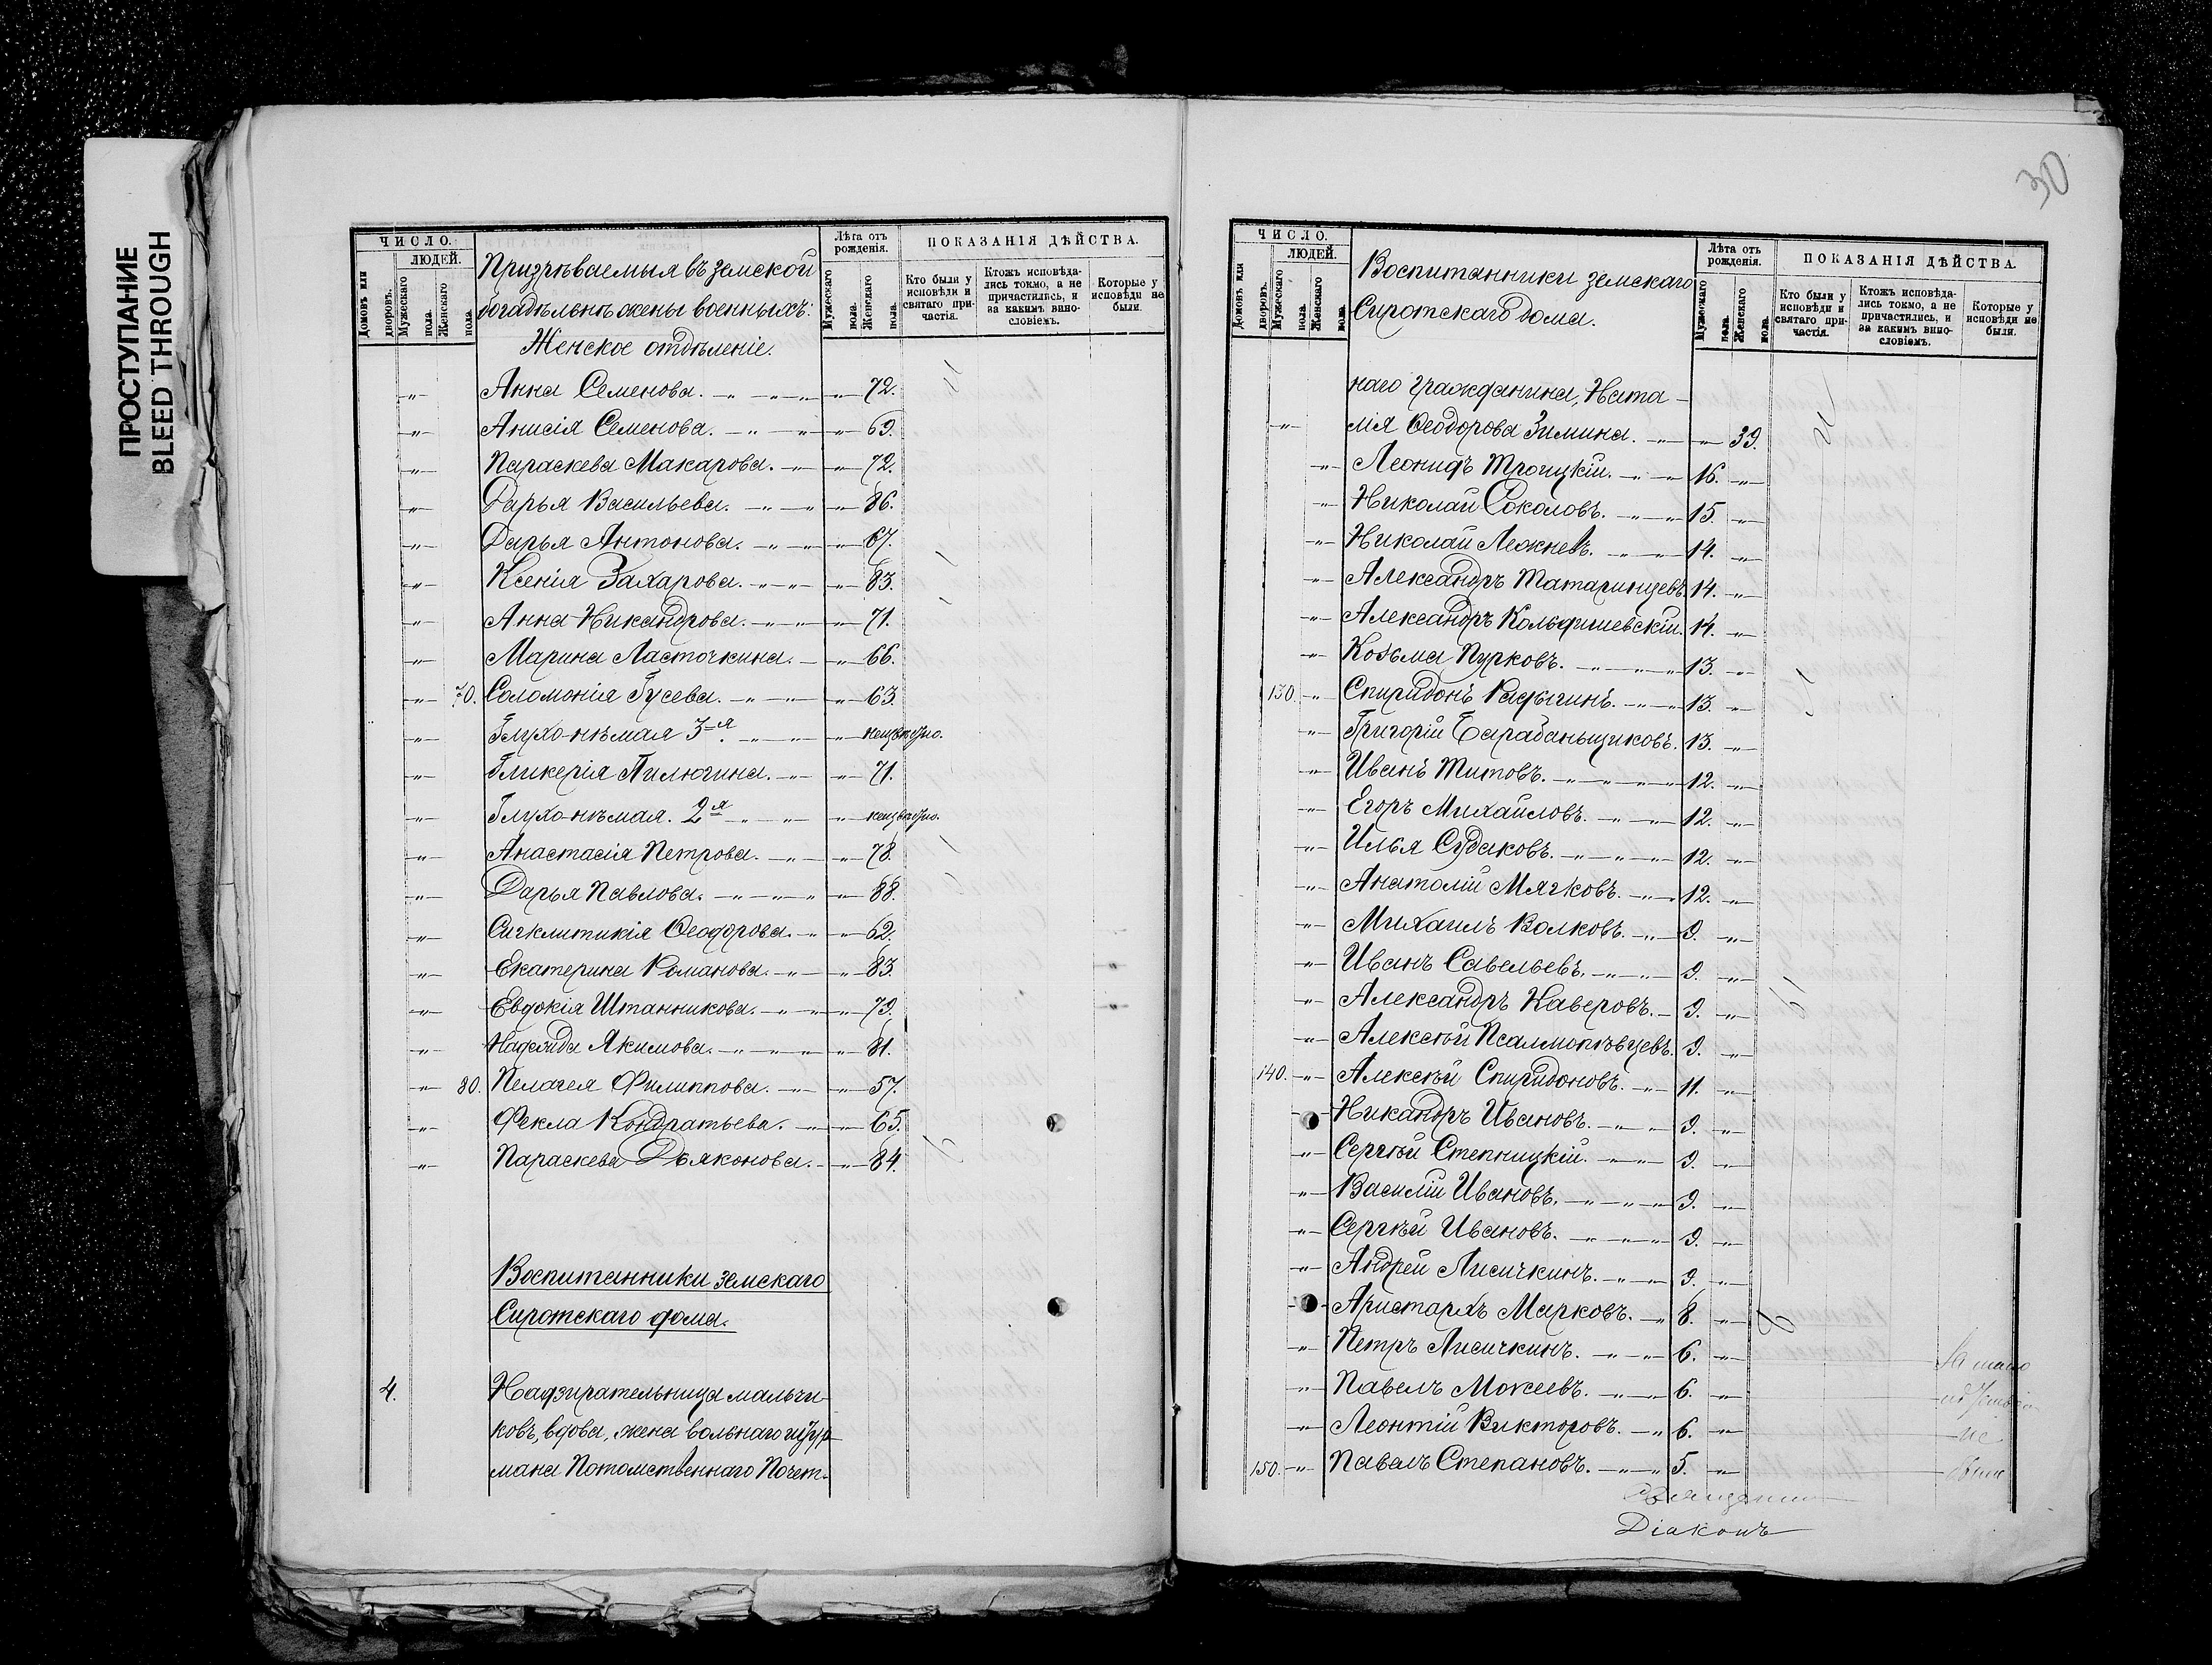 ПРОСТУПАНИЕ
BLEED THROUGH
ЧИСЛО.
ЛЮДЕЙ.
Домовъ или дворовъ.
Мужескаго пола.
Женскаго пола.
Призрѣваемыя въ земской
богадѣльнѣ жены военныхъ:
Женское отдѣленіе.
Лѣта отъ рожденія.
Мужескаго пола.
Женскаго пола.
ПОКАЗАНІЯ ДѢЙСТВА.
Кто были у исповѣди и святаго причастія.
Ктожъ исповѣдались токмо, а не причастились, и за какимъ винословіемъ.
Которые у исповѣди не были.
Анна Семенова. 72.
Анисія Семенова. 69.
Параскева Макарова. 72.
Дарья Васильева. 86.
Дарья Антонова. 67.
Ксенія Захарова. 83.
Анна Никандрова. 71.
Марина Ласточкина. 66.
70. Соломонія Гусева. 63.
Глухо-нѣмая 3-я. неизвѣстно.
Гликерія Пилюгина. 71.
Глухо-нѣмая. 2я неизвѣстно.
Анастасія Петрова. 78.
Дарья Павлова. 88.
Сигклитикія Ѳеодорова. 62.
Екатерина Романова. 83.
Евдокія Штанникова. 79.
Надежда Якимова. 81.
80. Пелагея Филиппова. 57.
Фекла Кондратьева. 65.
Параскева Дьяконова. 84.
Воспитанники земскаго
Сиротскаго дома.
4. Надзирательница мальчи-
ковъ, вдова, жена вольнаго штур-
мана Потомственнаго Почет-
30
ЧИСЛО.
ЛЮДЕЙ.
Домовъ или дворовъ.
Мужескаго пола.
Женскаго пола.
Воспитанники земскаго
Сиротскаго дома.
Лѣта отъ рожденія.
Мужескаго пола.
Женскаго пола.
ПОКАЗАНІЯ ДѢЙСТВА.
Кто были у исповѣди и святаго причастія.
Ктожъ исповѣдались токмо, а не причастились, и за какимъ винословіемъ.
Которые у исповѣди не были.
наго гражданина, Ната-
лія Ѳеодорова Зимина. 39.
Леонидъ Троицкій. 16.
Николай Соколовъ. 15.
Николай Лежневъ. 14.
Александръ Татаринцевъ. 14.
Александръ 14.
Козьма Пурковъ. 13.
130. Спиридонъ Радыгинъ. 13.
Григорій Барабаньщиковъ. 13.
Иванъ Титовъ. 12.
Егоръ Михайловъ. 12.
Илья Судаковъ. 12.
Анатолій Мягковъ. 12.
Михаилъ Волковъ. 9.
Иванъ Савельевъ. 9.
Александръ Каверовъ. 9.
Алексѣй Псалмопѣвцевъ. 9.
140. Алексѣй Спиридоновъ. 11.
Никандръ Ивановъ. 9.
Сергѣй Степницкій. 9.
Василій Ивановъ. 9.
Сергѣй Ивановъ. 9.
Андрей Лисичкинъ. 9.
Аристархъ Марковъ. 8.
Петръ Лисичкинъ. 6.
Павелъ Мокеевъ. 6.
Леонтій Викторовъ. 6.
не
150. Павелъ Степановъ. 5.
Діаконъ